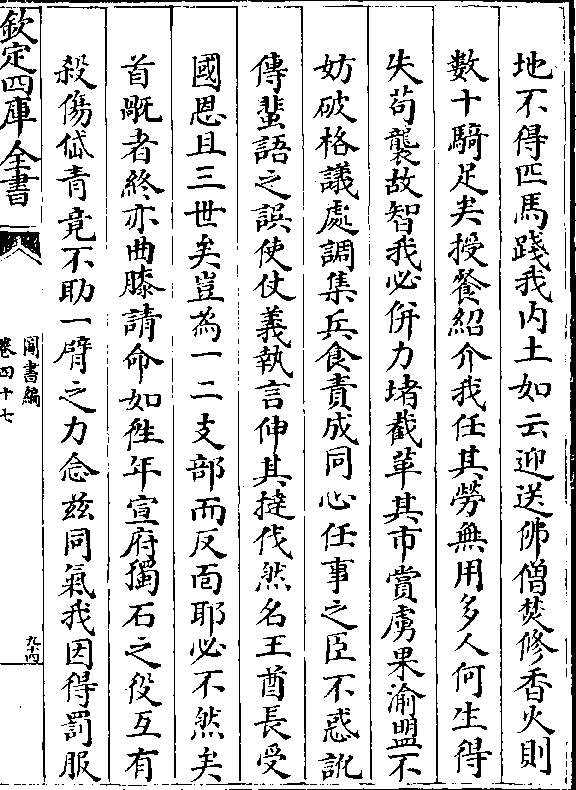 地不得匹馬踐我内土如云迎送佛僧焚修香火則
數十騎足矣授餐紹介我任其勞無用多人何生得
失苟襲故智我必併力堵截革其市賞虜果渝盟不
妨破格議處調集兵食責成同心任事之臣不惑訛
傳蜚語之誤使仗義執言伸其撻伐然名王酋長受
國恩且三世矣豈為一二支部而反面耶必不然矣
首戢者終亦曲膝請命如徃年宣府獨石之役互有
殺傷俺青竟不助一臂之力念兹同氣我因得罰服
欽定四庫全書
圖書編
卷四十七
九十四